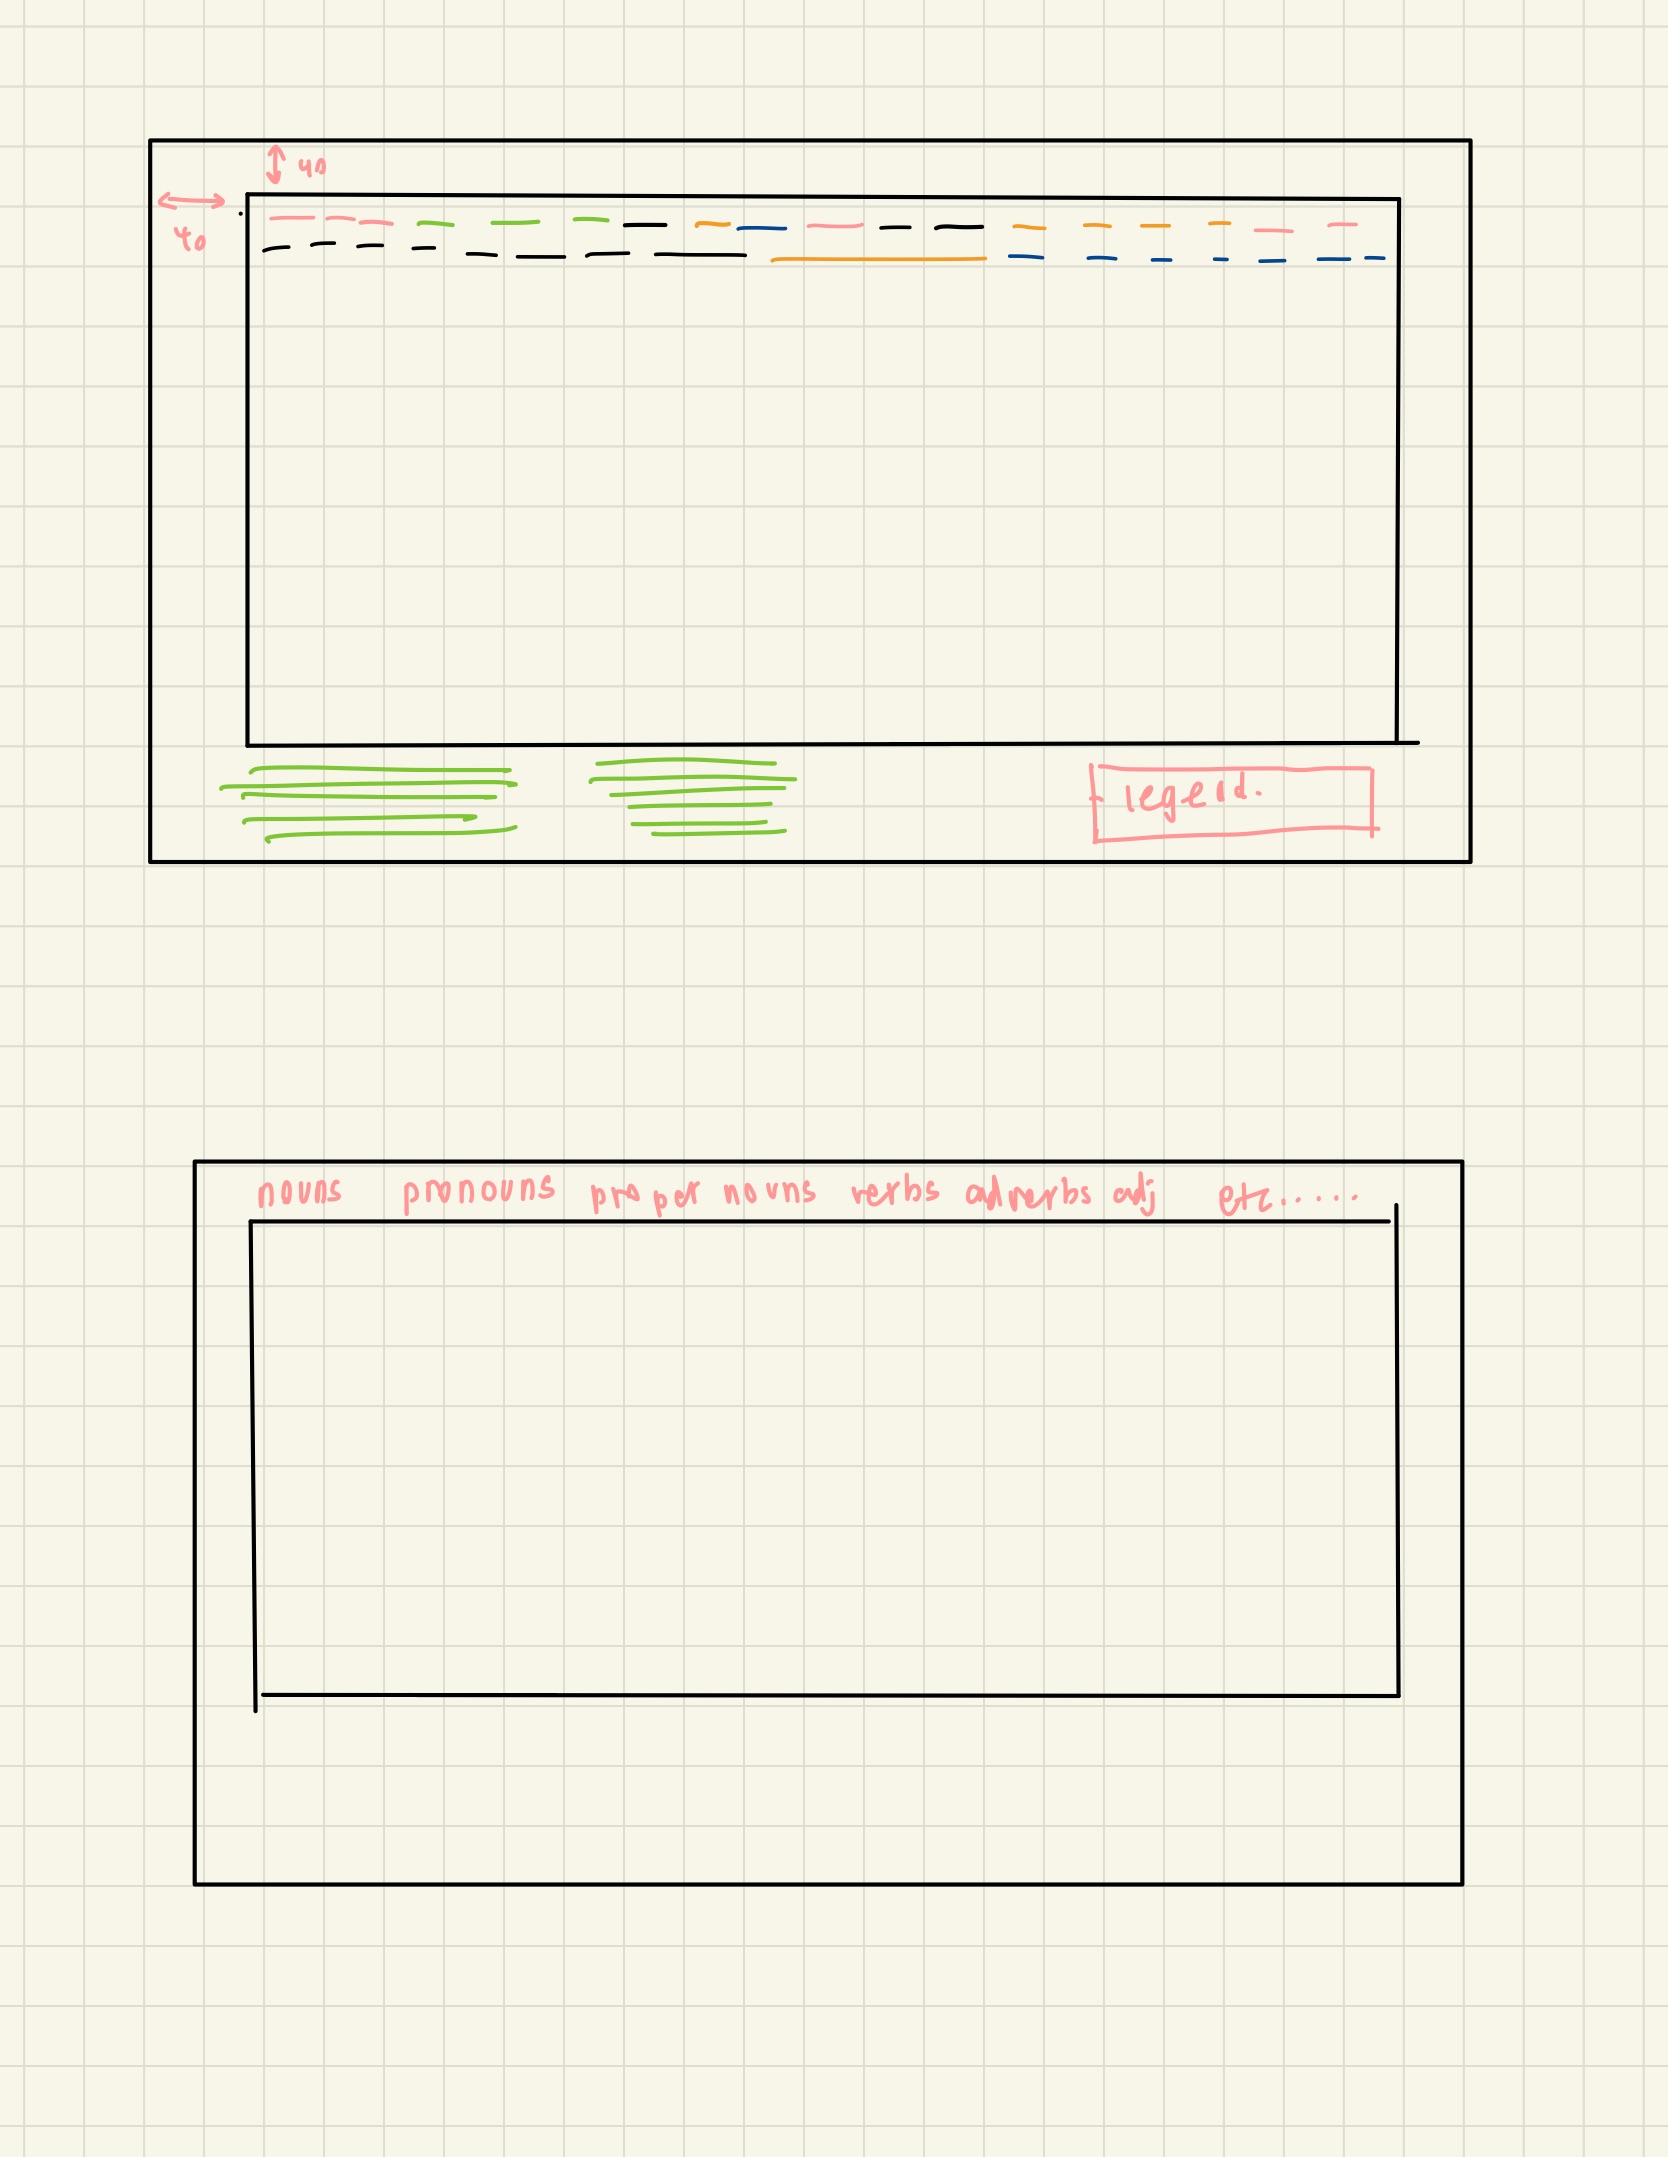 40
40
legend.
nouns pronouns proper nouns verbs adverbs adj etc.....